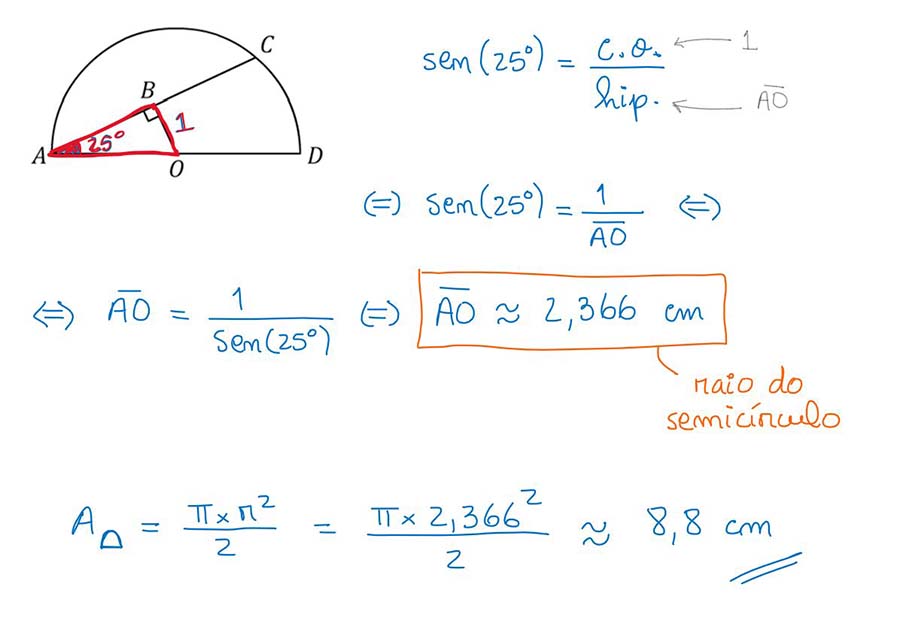 C
B
1
25°
A
O
D
sen(25°) = c.o. / hip.
1
AO
(=) sen(25°) = 1 / AO (=)
(=) AO = 1 / sen(25°) (=) AO ≈ 2,366 cm
raio do
semicírculo
A⌓ = π × r² / 2 = π × 2,366² / 2 ≈ 8,8 cm